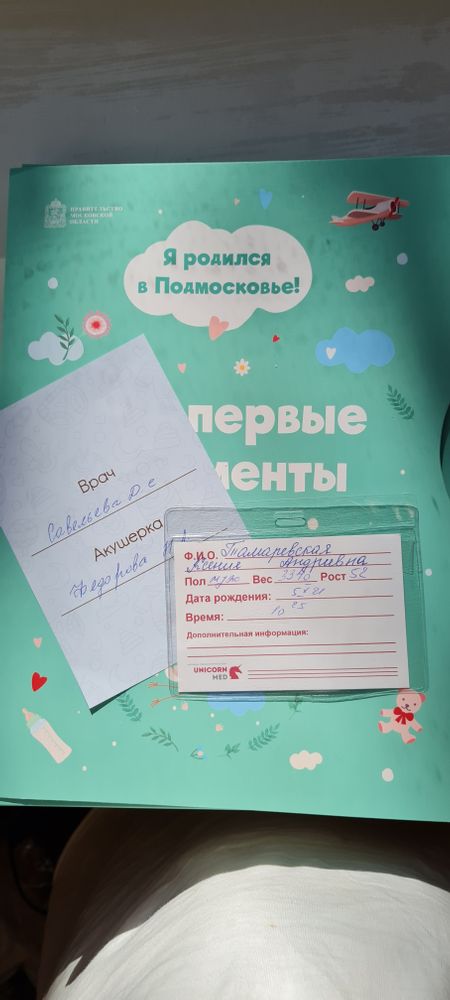 ПРАВИТЕЛЬСТВО
МОСКОВСКОЙ
ОБЛАСТИ
Я родился
в Подмосковье!
первые
менты
Врач
Савельева
Акушерка
Федорова
Ф.И.О. Тамаревская
Ксения Андриевна
Пол муж Вес 3310 Рост 52
Дата рождения:
Время: 10 25
Дополнительная информация:
UNICORN
MED